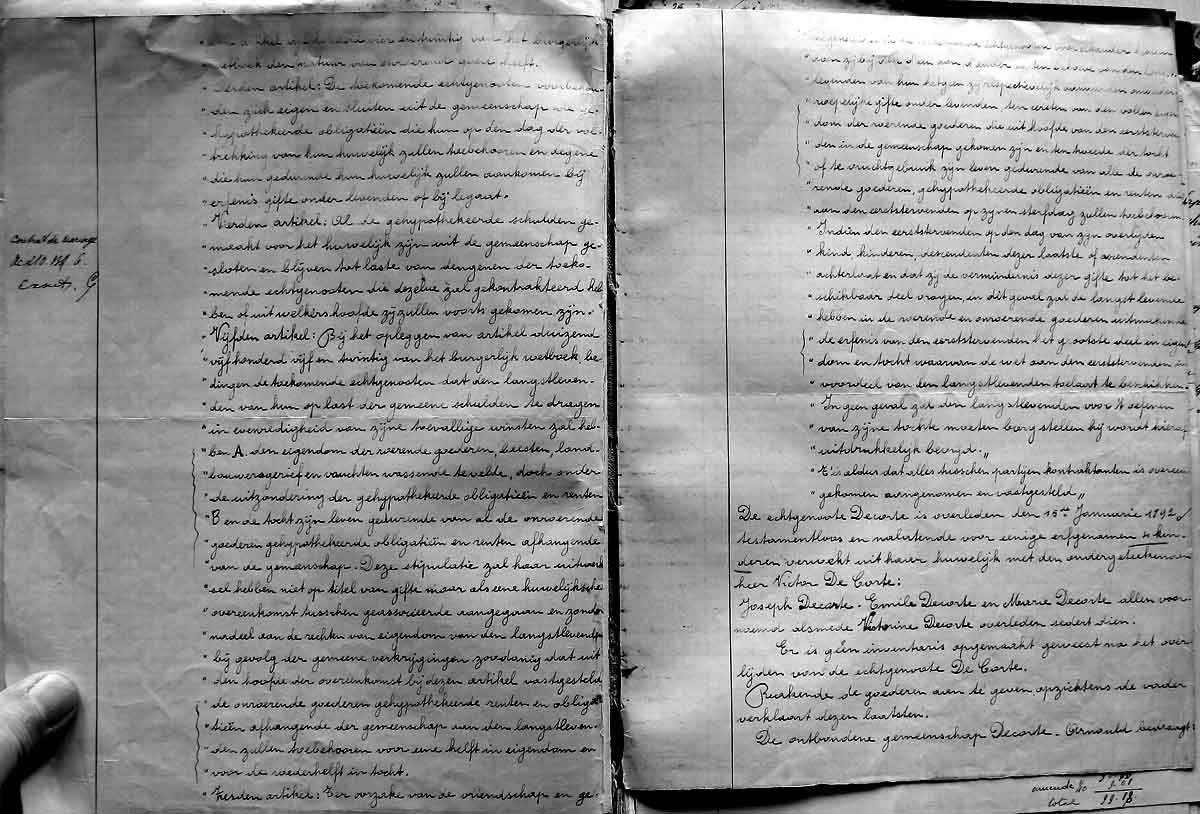 vier en twintig van het burgerlijk
" wetboek den natuur van onroerend goed heeft.
" Derden artikel: De toekomende echtgenoten voorbehou-
" den zich eigen en sluiten uit de gemeenschap de ge-
" hypothekeerde obligatiën die hun op den dag der vol-
" trekking van hun huwelijk zullen toebehooren en degene
" die hun gedurende hun huwelijk zullen aankomen bij
" erfenis gifte onder levenden of bij legaat.
" Vierden artikel: Al de gehypothekeerde schulden ge-
" maakt voor het huwelijk zijn uit de gemeenschap ge-
" sloten en blijven tot laste van dengenen der toeko-
" mende echtgenoten die dezelve zal gekontrakteerd heb
" ben of uit welkers hoofde zij zullen voorts gekomen zijn.
" Vijfden artikel: Bij het opleggen van artikel duizend
" vijfhonderd vijf en twintig van het burgerlijk wetboek be
" dingen de toekomende echtgenoten dat den langstleven-
" den van hun op last der gemeene schulden te dragen
" in evenredigheid van zijne toevallige winsten zal heb-
" ben A. den eigendom der roerende goederen beesten, land
" bouwersgerief en vruchten wassende te velde, doch onder
" de uitzondering der gehypothekeerde obligatieën en renten
" B en de tocht zijn leven gedurende van al de onroerende
" goederen gehypothekeerde obligatiën en renten afhangende
" van de gemenschap. Deze stipulatie zal haar uitwerk
" sel hebben niet op titel van gifte maar als eene huwelijksche
" overeenkomst tusschen geassocieerde aangegaan en zonder
" nadeel aan de rechten van eigendom van den langstlevenden
" bij gevolg der gemeene verkrijgingen zoodanig dat uit
" den hoofde der overeenkomst bij dezen artikel vastgesteld
" de onroerende goederen gehypothekeerde renten en obliga
" tieën afhangende der gemeenschap aan den langstleven-
" den zullen toebehooren voor eene helft in eigendom en
" voor de wederhelft in tocht.
" Zesden artikel: Ter oorzake van de vriendschap en ge-
Contrat de mariage
Exact.
" levenden van hun hetgeen zij respectievelijk aanvaarden onweder
" roepelijke gifte onder levenden ten eersten van den vollen eigen
" dom der roerende goederen die uit hoofde van den eerststerven
" den in de gemeenschap gekomen zijn en ten tweede der tocht
" of te vruchtgebruik zijn leven gedurende van alle de onroe
" rende goederen, gehypothekeerde obligatiën en renten die
" aan den eerststervenden op zijnen sterfdag zullen toebehooren.
" Indien den eerststervenden op den dag van zijn overlijden
" kind kinderen, descendenten dezer laatste of ascendenten
" achterlaat en dat zij de vermindernis dezer gifte tot het be
" schikbaar deel vragen, in dit geval zal de langst levende
" hebben in de roerende en onroerende goederen uitmakende
" de erfenis van den eerststervenden het grootste deel in eigen
" dom en tocht waarvan de wet aan den eerststervenden in
" voordeel van den langstlevenden toelaat te beschikken.
" In geen geval zal den langstlevenden voor 't oefenen
" van zijne tochte moeten borg stellen hij wordt hiervan
" uitdrukkelijk bevrijd. "
" 't is aldus dat alles tusschen partijen kontraktanten is overeen
" gekomen aangenomen en vastgesteld "
De echtgenoote Decorte is overleden den 15den Januarie 1892
testamentloos en nalatende voor eenige erfgenamen 4 kin-
deren verwekt uit haer huwelijk met den ondergeteekenden
heer Victor De Corte:
Joseph Decorte. Emile Decorte en Marie Decorte allen voor-
noemd alsmede Victorine Decorte overleden sedert dien.
Er is géén inventaris opgemaakt geweest na het over
lijden van de echtgenoote De Corte.
Raakende de goederen aen te geven, opzichtens de vader
verklaart dezen laatsten.
De ontbondene gemeenschap Decorte. Arnauld bedraagt
amende
total 99.18.